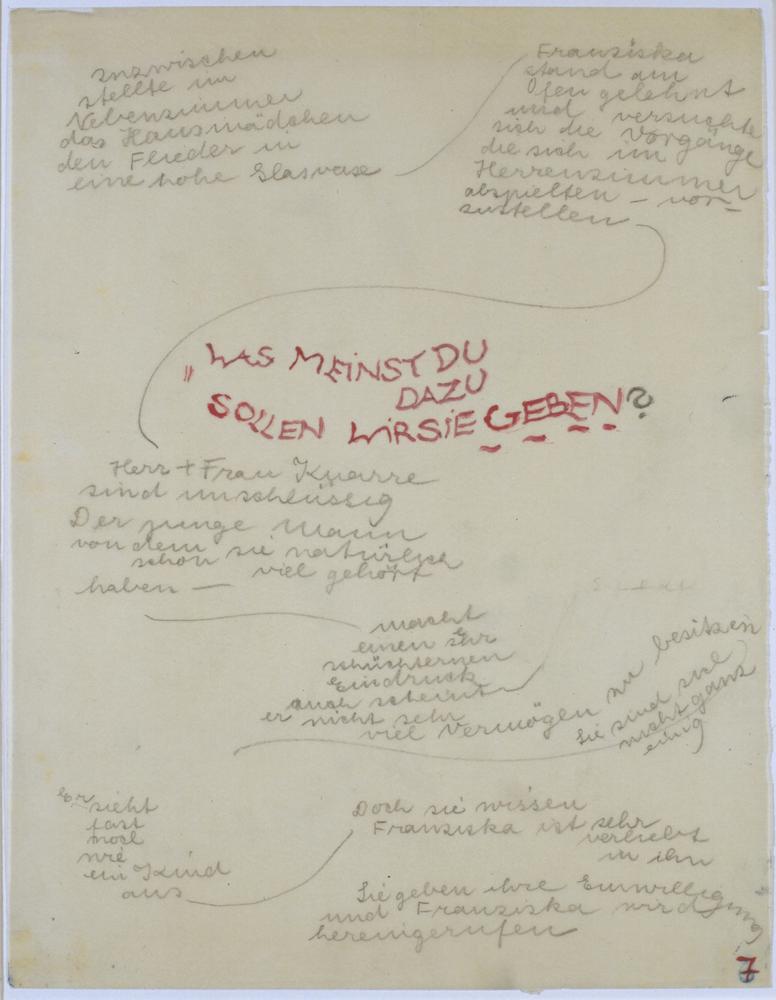 Inzwischen
stellte im
Nebenzimmer
das Hausmädchen
den Flieder in
eine hohe Glasvase
Franziska
stand am
Ofen gelehnt
und versuchte
sich die Vorgänge
die sich im
Herrenzimmer
abspielten – vor-
zustellen
„WAS MEINST DU
DAZU
SOLLEN WIR SIE GEBEN?
Herr + Frau Knarre
sind unschlüssig
Der junge Mann
von dem sie natürlich
schon viel gehört
haben —
macht
einen sehr
schüchternen
Eindruck
auch scheint
er nicht sehr
viel Vermögen zu besitzen
Sie sind sich
nicht ganz
einig
Er sieht
fast
noch
wie
ein Kind
aus
Doch sie wissen
Franziska ist sehr
verliebt
in ihn
Sie geben ihre Einwilligung
und Franziska wird
hereingerufen
7